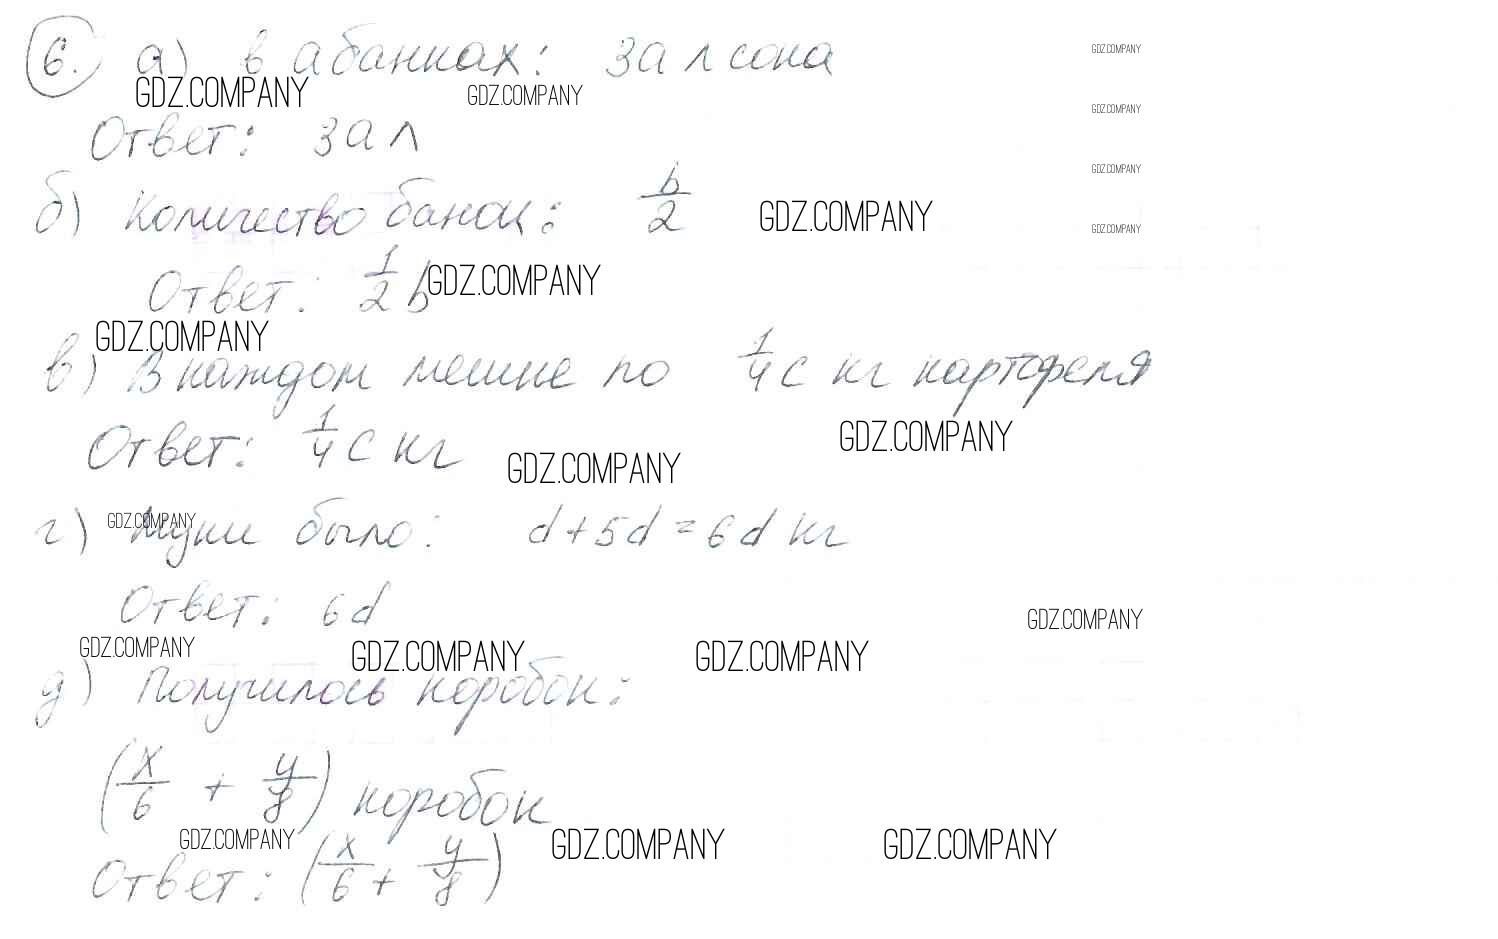 6. а) в а банках: 3а л сока
GDZ.COMPANY GDZ.COMPANY GDZ.COMPANY
GDZ.COMPANY
Ответ: 3а л
GDZ.COMPANY
б) Количество банок: b/2 GDZ.COMPANY GDZ.COMPANY
Ответ: 1/2 b GDZ.COMPANY
GDZ.COMPANY
в) В каждом мешке по 1/4 с кг картофеля
Ответ: 1/4 с кг GDZ.COMPANY
GDZ.COMPANY
г) Муки было: d + 5d = 6d кг
GDZ.COMPANY
Ответ: 6d GDZ.COMPANY
GDZ.COMPANY GDZ.COMPANY GDZ.COMPANY
д) Получилось коробок:
(x/6 + y/8) коробок
GDZ.COMPANY GDZ.COMPANY GDZ.COMPANY
Ответ: (x/6 + y/8)